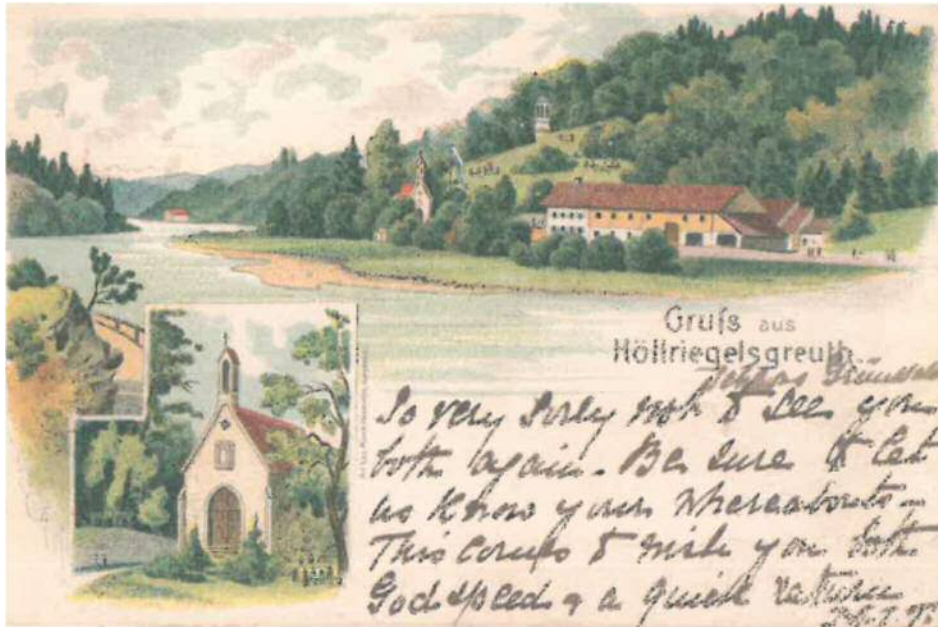 Gruſs aus
Höllriegelsgreuth
So very sorry not to see you
both again. Be sure & let
us know your whereabouts –
This comes to wish you both
Godspeed & a quick return